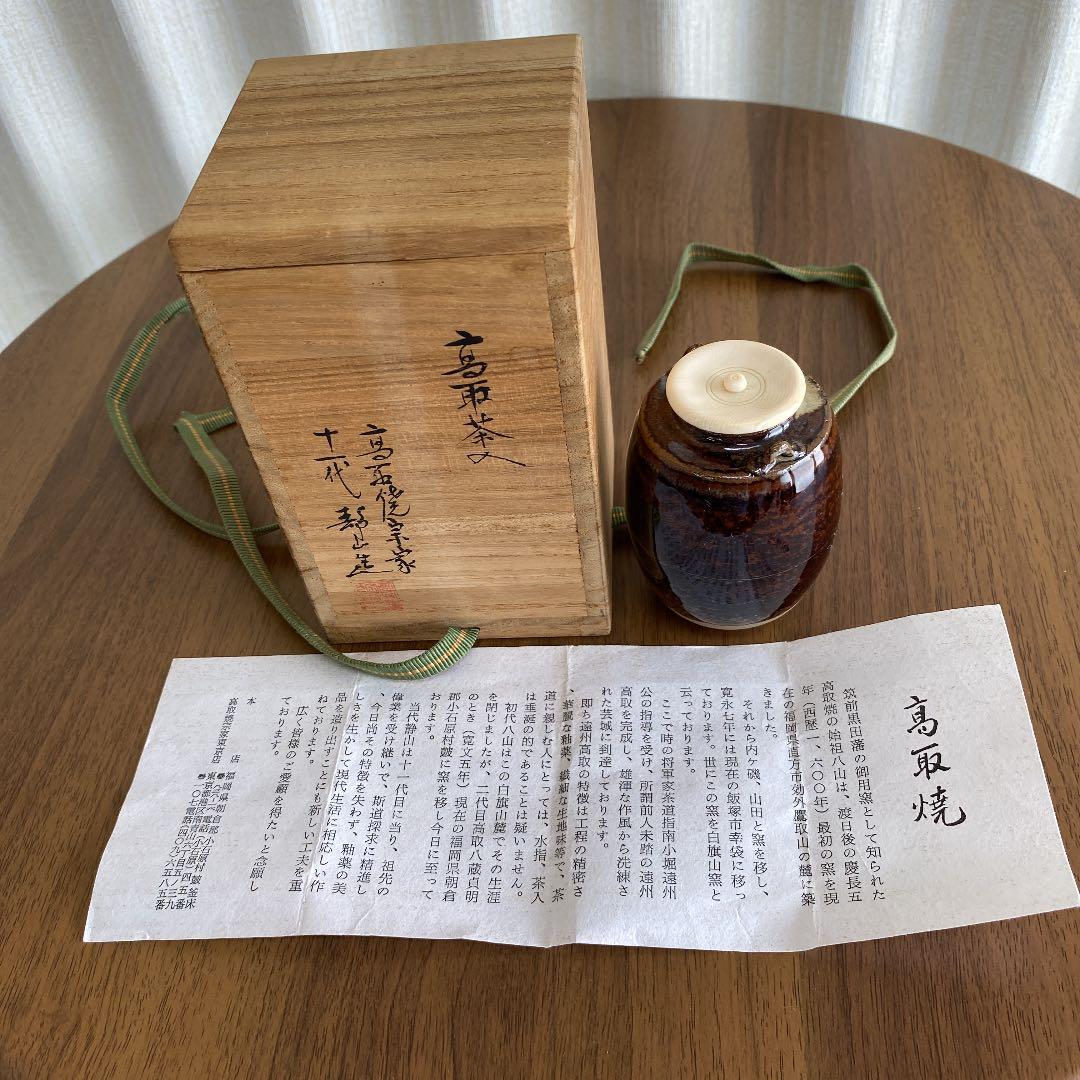 高取茶入
高取焼宗家
十一代 静山造
高取焼
筑前黒田藩の御用窯として知られた
高取焼の始祖八山は、渡日後の慶長五
年(西歴一、六〇〇年)最初の窯を現
在の福岡県直方市効外鷹取山の麓に築
きました。
それから内ヶ磯、山田と窯を移し、
寛永七年には現在の飯塚市幸袋に移っ
ております。世にこの窯を白旗山窯と
云っております。
ここで時の将軍家茶道指南小堀遠州
公の指導を受け、所謂前人未踏の遠州
高取を完成し、雄渾な作風から洗練さ
れた芸域に到達しております。
即ち遠州高取の特徴は工程の精密さ
、華麗な釉薬、繊細な生地味等で、茶
道に親しむ人にとっては、水指、茶入
は垂涎の的であることは疑いません。
初代八山はこの白旗山麓でその生涯
を閉じましたが、二代目高取八蔵貞明
のとき(寛文五年)現在の福岡県朝倉
郡小石原村皷に窯を移し今日に至って
おります。
当代静山は十一代目に当り、祖先の
偉業を受け継いで、斯道探求に精進し
、今日尚その特徴を失わず、釉薬の美
しさを生かして現代生活に相応しい作
品を造り出すことにも新しい工夫を重
ねております。
広く皆様のご愛顧を得たいと念願し
ております。
本店
福岡県朝倉郡小石原村皷釜床
高取焼宗家東京店
東京都港区南青